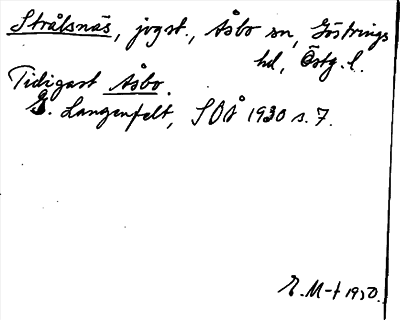 Strålsnäs, jvgst., Åsbo sn, Göstrings
hd, Östg. l.
Tidigast Åsbo.
G. Langenfelt, SOÅ 1930 s. 7.
E. M-t 1950.